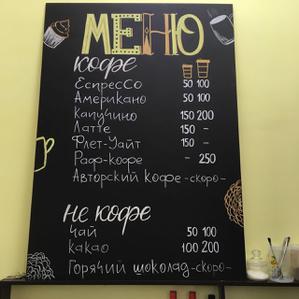 МЕНЮ
кофе
ЕспресСо 50 100
Американо 50 100
Капучино 150 200
Латте 150 -
Флет-Уайт 150 -
Раф-кофе - 250
Авторский кофе -скоро-
не кофе
Чай 50 100
какао 100 200
Горячий шоколад -скоро-